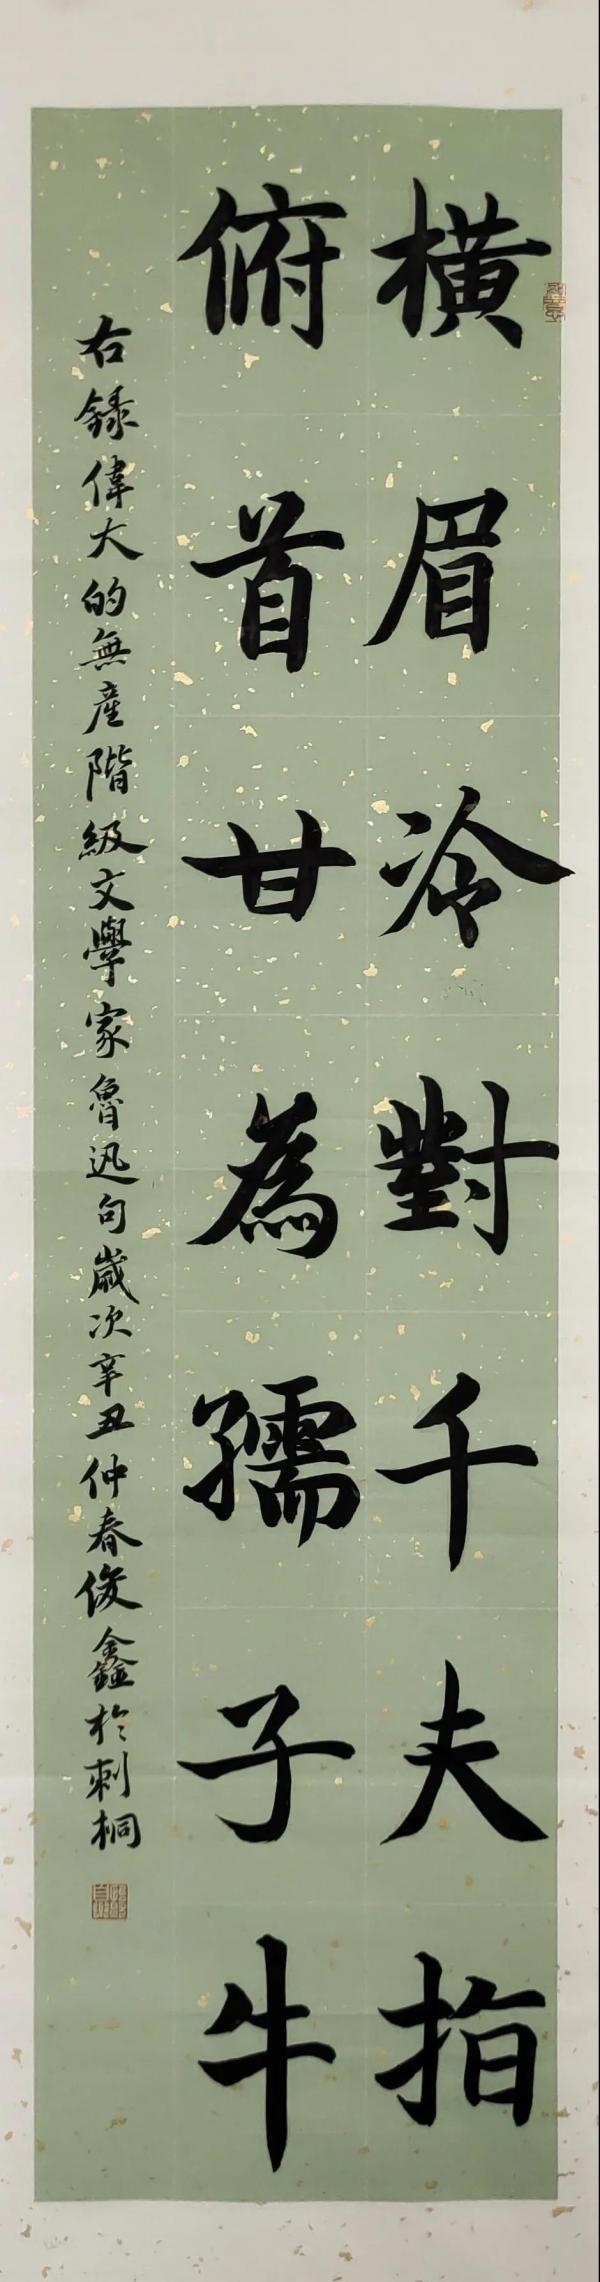 橫眉冷對千夫指
俯首甘為孺子牛
右錄偉大的無產階級文學家魯迅句歲次辛丑仲春俊鑫於刺桐